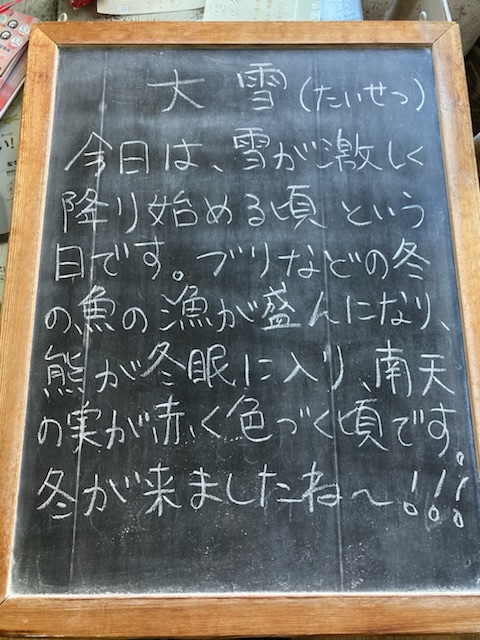 大雪(たいせつ)
今日は、雪が激しく
降り始める頃という
日です。ブリなどの冬
の魚の漁が盛んになり、
熊が冬眠に入り、南天
の実が赤く色づく頃です。
冬が来ましたね〜!!!